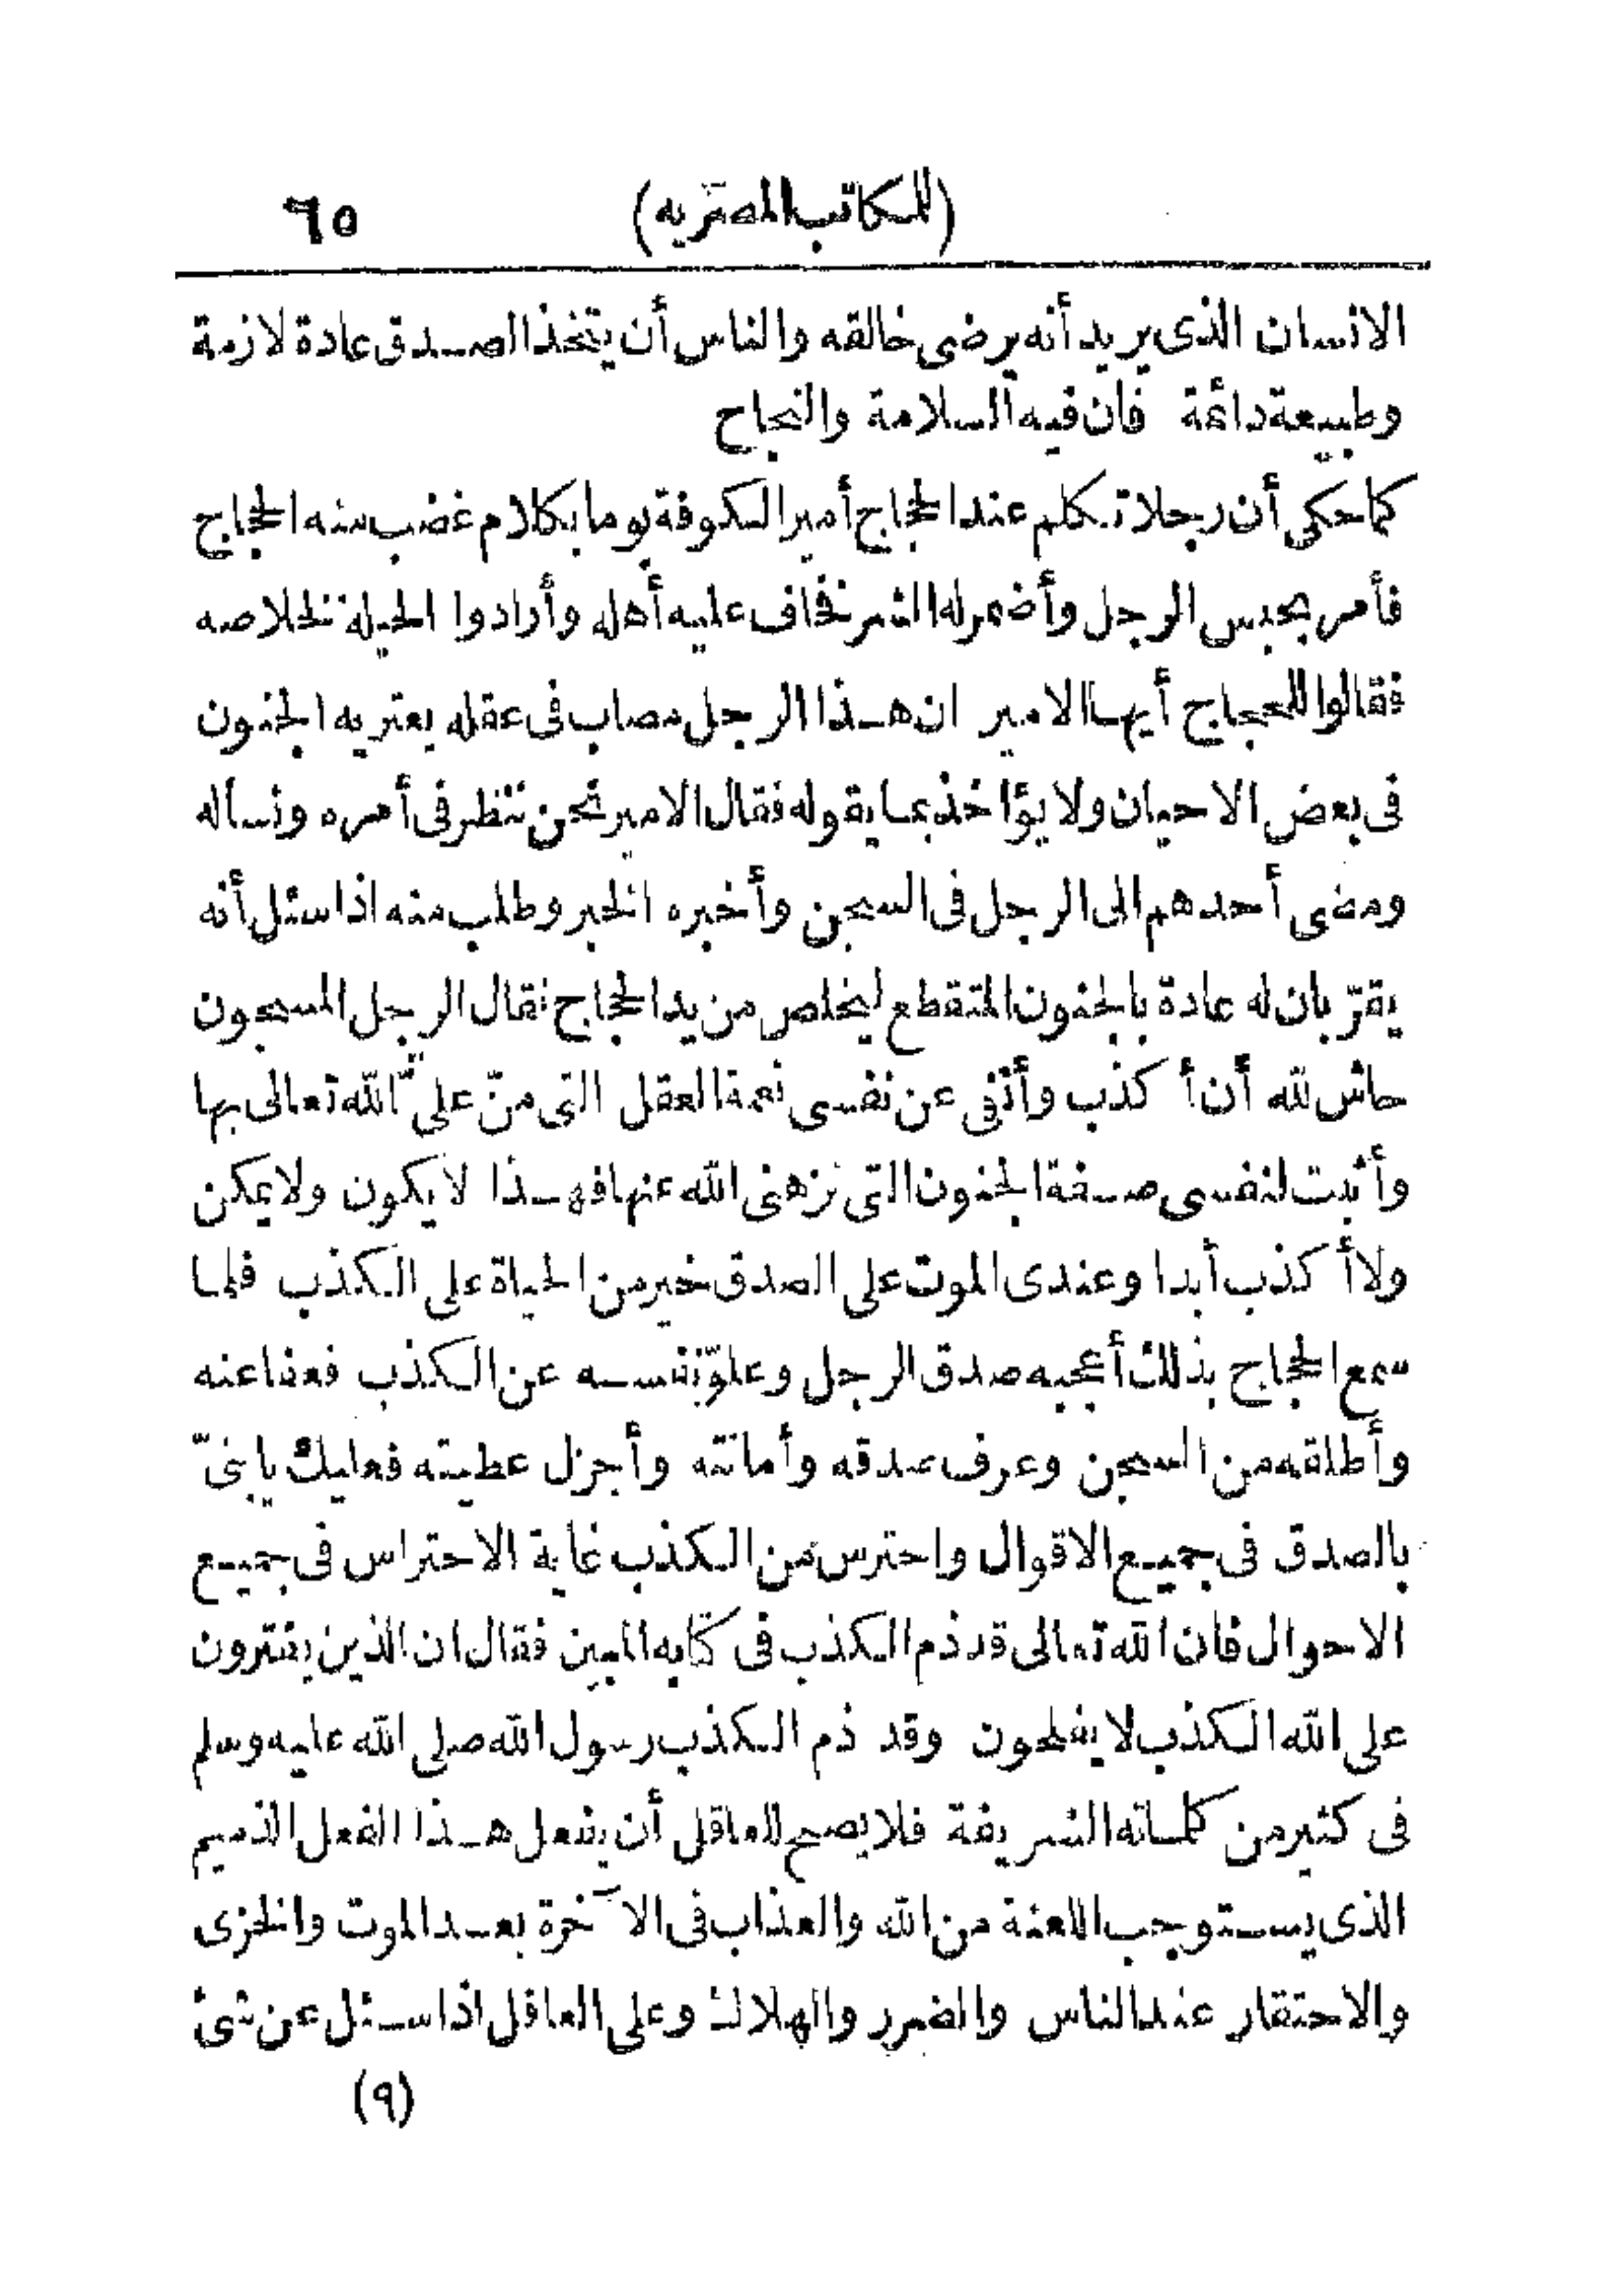 (للمكاتب المصريه) ٦٥
الانسان الذى يريد أنه يرضى خالقه والناس أن يتخذ الصدق عادة لازمة
وطبيعة دائمة فان فيه السلامة والنجاح
كما حكى أن رجلا تكلم عند الحجاج أمير الكوفة يوما بكلام غضب منه الحجاج
فأمر بحبس الرجل وأضمر له الشر فخاف عليه أهله وأرادوا الحيلة لخلاصه
فقالوا للحجاج أيها الامير ان هذا الرجل مصاب فى عقله يعتريه الجنون
فى بعض الاحيان ولا يؤاخذ بما يقوله فقال الامير نحن ننظر فى أمره ونسأله
ومضى أحدهم الى الرجل فى السجن وأخبره الخبر وطلب منه اذا سئل أنه
يقرّ بان له عادة بالجنون المتقطع ليخلص من يد الحجاج فقال الرجل المسجون
حاش لله أن أكذب وأنفى عن نفسى نعمة العقل التى منّ علىّ الله تعالى بها
وأثبت لنفسى صفة الجنون التى نزهنى الله عنها فهذا لا يكون ولا يمكن
ولا أكذب أبدا وعندى الموت على الصدق خير من الحياة على الكذب فلما
سمع الحجاج بذلك أعجبه صدق الرجل وعلوّ نفسه عن الكذب فعفا عنه
وأطلقه من السجن وعرف صدقه وأمانته وأجزل عطيته فعليك يا بنىّ
بالصدق فى جميع الاقوال واحترس من الكذب غاية الاحتراس فى جميع
الاحوال فان الله تعالى قد ذم الكذب فى كتابه المبين فقال ان الذين يفترون
على الله الكذب لا يفلحون وقد ذم الكذب رسول الله صلى الله عليه وسلم
فى كثير من كلماته الشريفة فلا يصح للعاقل أن يفعل هذا الفعل الذميم
الذى يستوجب اللعنة من الله والعذاب فى الآخرة بعد الموت والخزى
والاحتقار عند الناس والضرر والهلاك وعلى العاقل اذا سئل عن شئ
(٩)